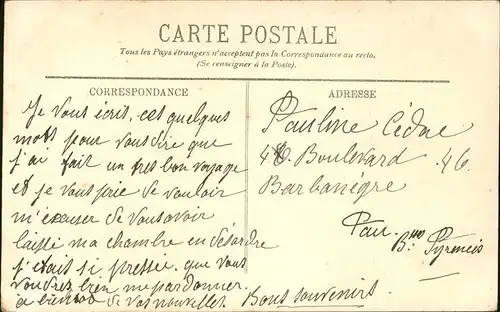 CARTE POSTALE
Tous les Pays étrangers n'acceptent pas la Correspondance au recto.
(Se renseigner à la Poste).
CORRESPONDANCE
Je vous écrit, cet quelques
mots pour vous dire que
j'ai fait un tres bon voyage
et je vous prie de vouloir
m'excuser de vous avoir
laissé ma chambre en désordre
j'était si pressée. que vous
voudrez bien me pardonner.
a bientot de vos nouvelles. Bons souvenirs.
ADRESSE
Pauline Cédac
46 Boulevard 46
Barbanègre
Pau.
Bses Pyrenées